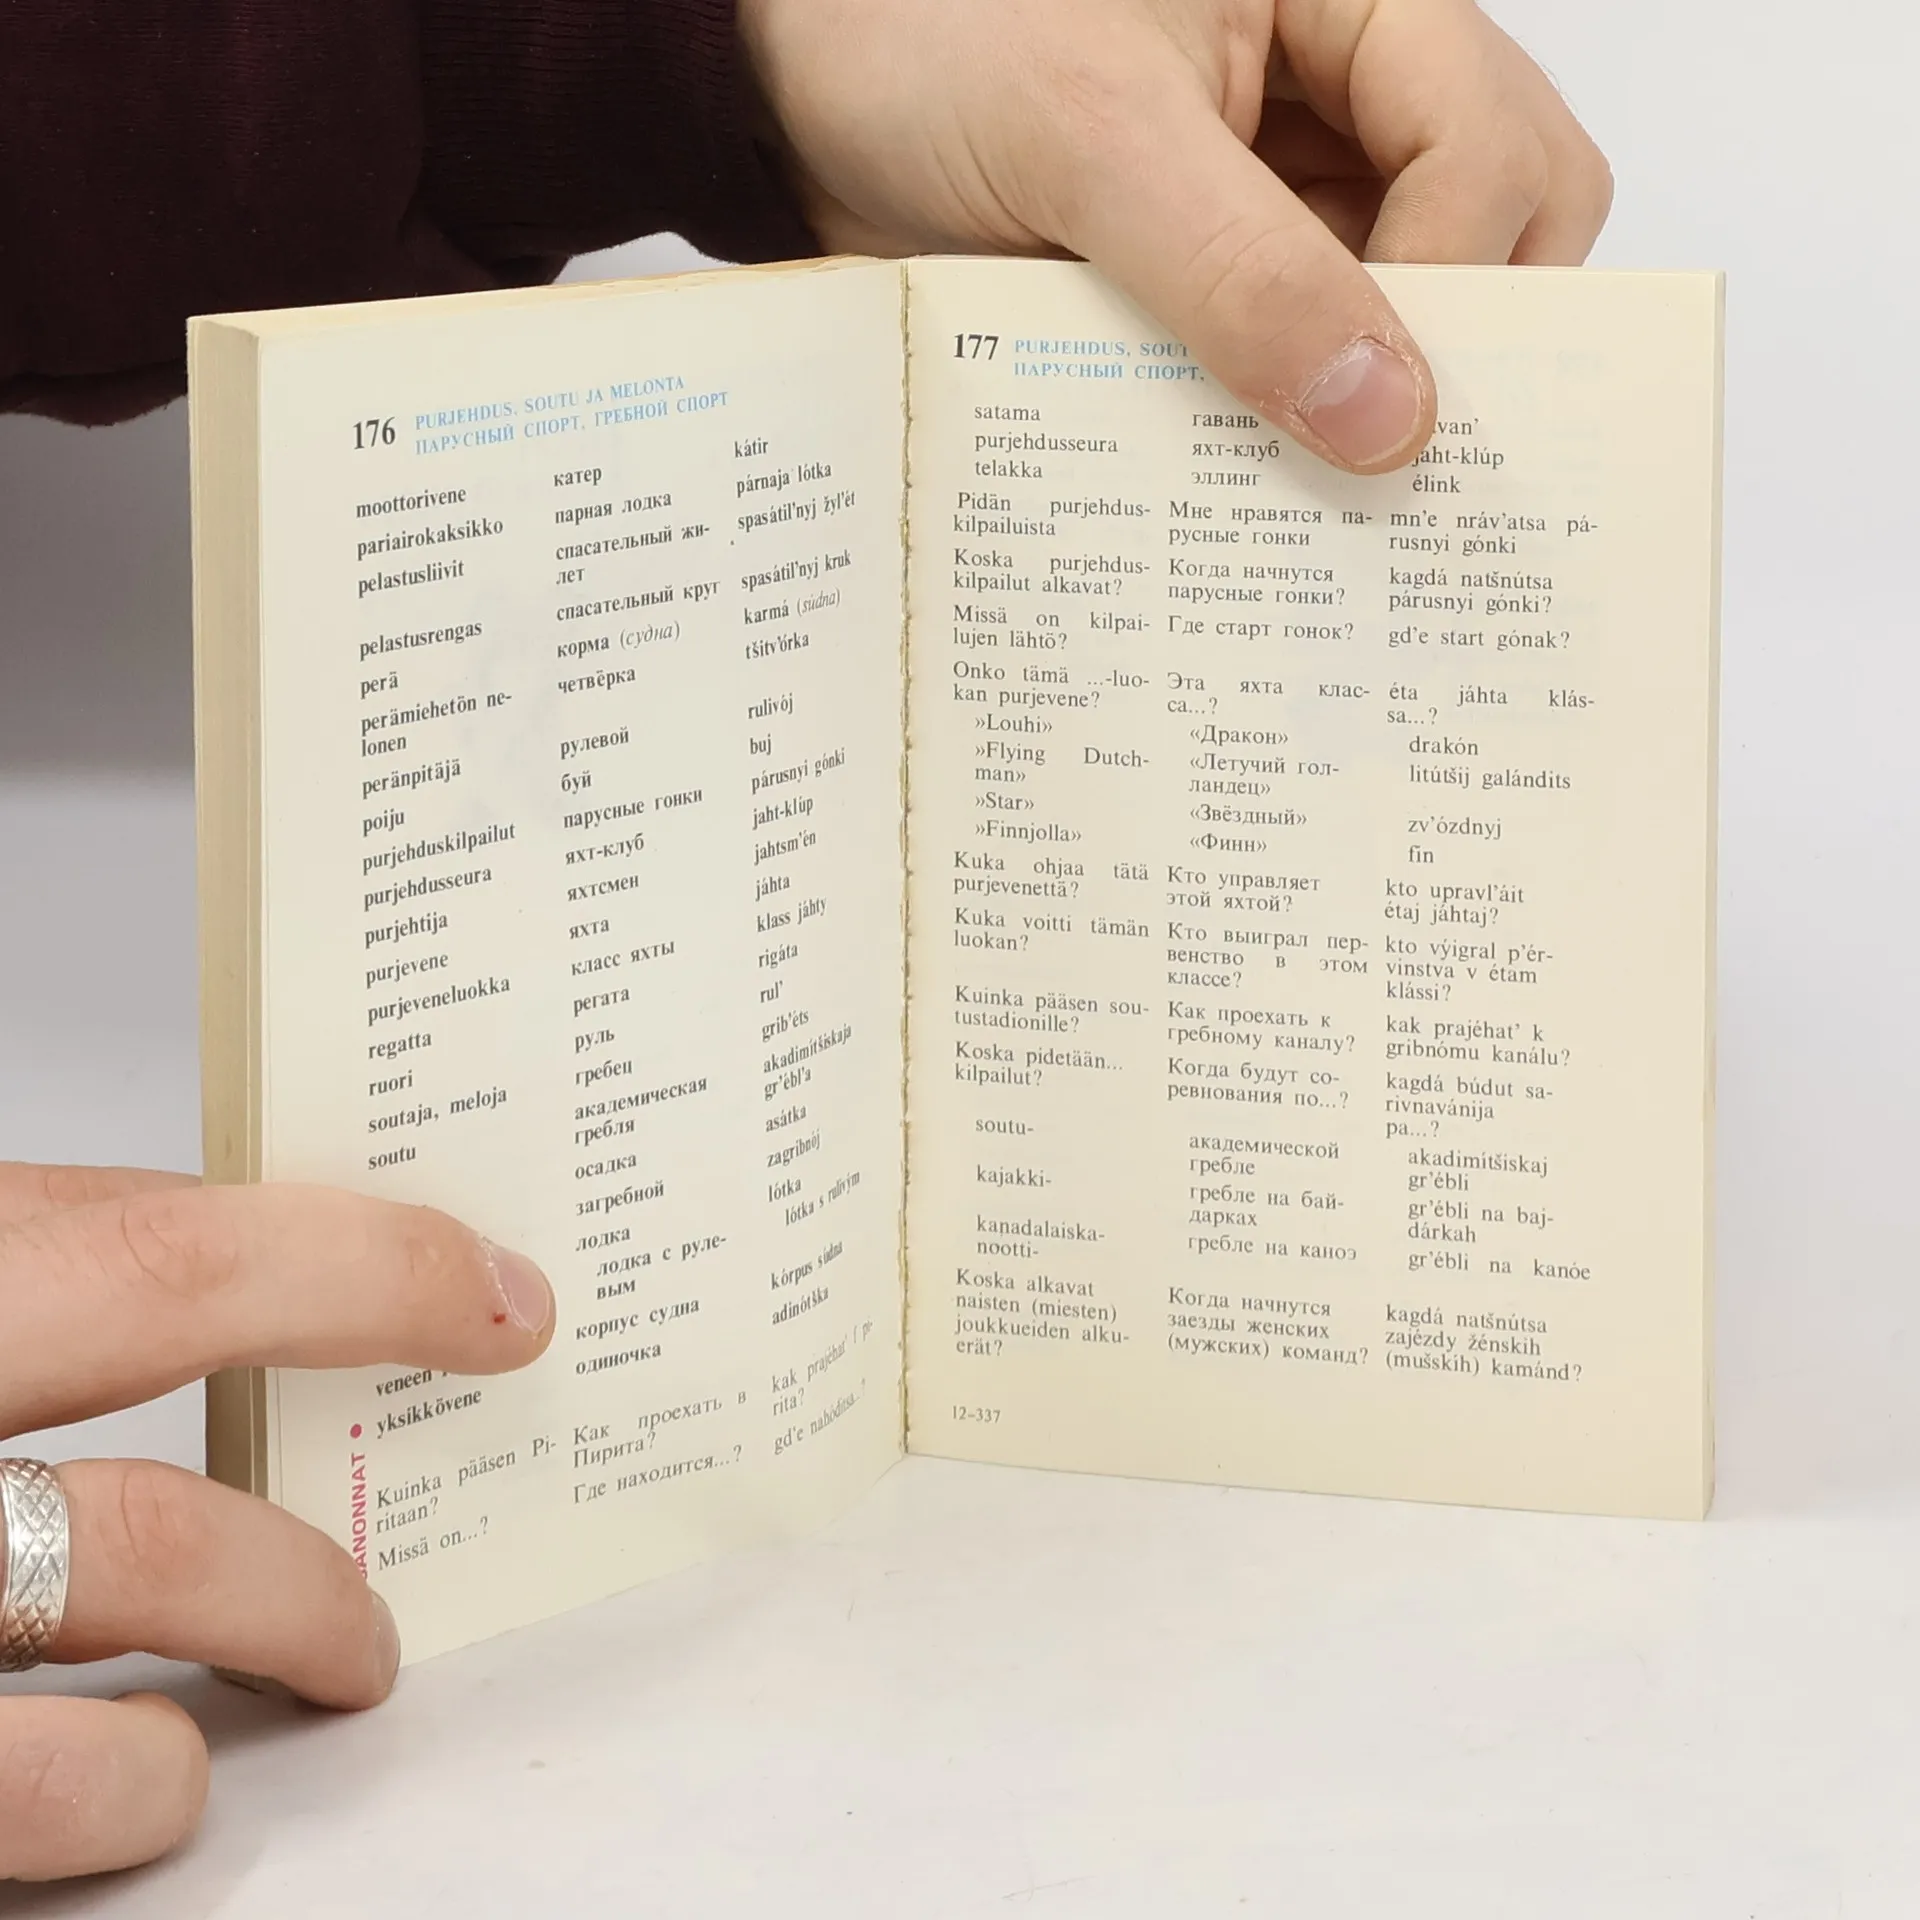 176 PURJEHDUS, SOUTU JA MELONTA
ПАРУСНЫЙ СПОРТ, ГРЕБНОЙ СПОРТ
moottorivene катер kátir
pariairokaksikko парная лодка párnaja lótka
pelastusliivit спасательный жи- spasátil'nyj žyl'ét
лет
pelastusrengas спасательный круг spasátil'nyj kruk
perä корма (судна) karmá (súdna)
perämiehetön ne- четвёрка tšitv'órka
lonen
peränpitäjä рулевой rulivój
poiju буй buj
purjehduskilpailut парусные гонки párusnyi gónki
purjehdusseura яхт-клуб jaht-klúp
purjehtija яхтсмен jahtsm'én
purjevene яхта jáhta
purjeveneluokka класс яхты klass jáhty
regatta регата rigáta
ruori руль rul'
soutaja, meloja гребец grib'éts
soutu академическая akadimítšiskaja
гребля gr'ébl'a
осадка asátka
загребной zagribnój
лодка lótka
лодка с руле- lótka s rulivým
вым
veneen корпус судна kórpus súdna
yksikkövene одиночка adinótška
SANONNAT
Kuinka pääsen Pi- Как проехать в kak prajéhat' f pi-
ritaan? Пирита? rita?
Missä on...? Где находится...? gd'e nahóditsa..?
177 PURJEHDUS,
ПАРУСНЫЙ СПОРТ,
satama гавань
purjehdusseura яхт-клуб jaht-klúp
telakka эллинг élink
Pidän purjehdus- Мне нравятся па- mn'e nráv'atsa pá-
kilpailuista русные гонки rusnyi gónki
Koska purjehdus- Когда начнутся kagdá natšnútsa
kilpailut alkavat? парусные гонки? párusnyi gónki?
Missä on kilpai- Где старт гонок? gd'e start gónak?
lujen lähtö?
Onko tämä ...-luo- Эта яхта клас- éta jáhta klás-
kan purjevene? са...? sa...?
»Louhi» «Дракон» drakón
»Flying Dutch- «Летучий гол- litútšij galándits
man» ландец»
»Star» «Звёздный» zv'ózdnyj
»Finnjolla» «Финн» fin
Kuka ohjaa tätä Кто управляет kto upravl'áit
purjevenettä? этой яхтой? étaj jáhtaj?
Kuka voitti tämän Кто выиграл пер- kto výigral p'ér-
luokan? венство в этом vinstva v étam
классе? klássi?
Kuinka pääsen sou- Как проехать к kak prajéhat' k
tustadionille? гребному каналу? gribnómu kanálu?
Koska pidetään... Когда будут со- kagdá búdut sa-
kilpailut? ревнования по...? rivnavánija
pa...?
soutu- академической akadimítšiskaj
гребле gr'ébli
kajakki- гребле на бай- gr'ébli na baj-
дарках dárkah
kanadalaiska- гребле на каноэ gr'ébli na kanóe
nootti-
Koska alkavat Когда начнутся kagdá natšnútsa
naisten (miesten) заезды женских zajézdy žénskih
joukkueiden alku- (мужских) команд? (mušskíh) kamánd?
erät?
12-337